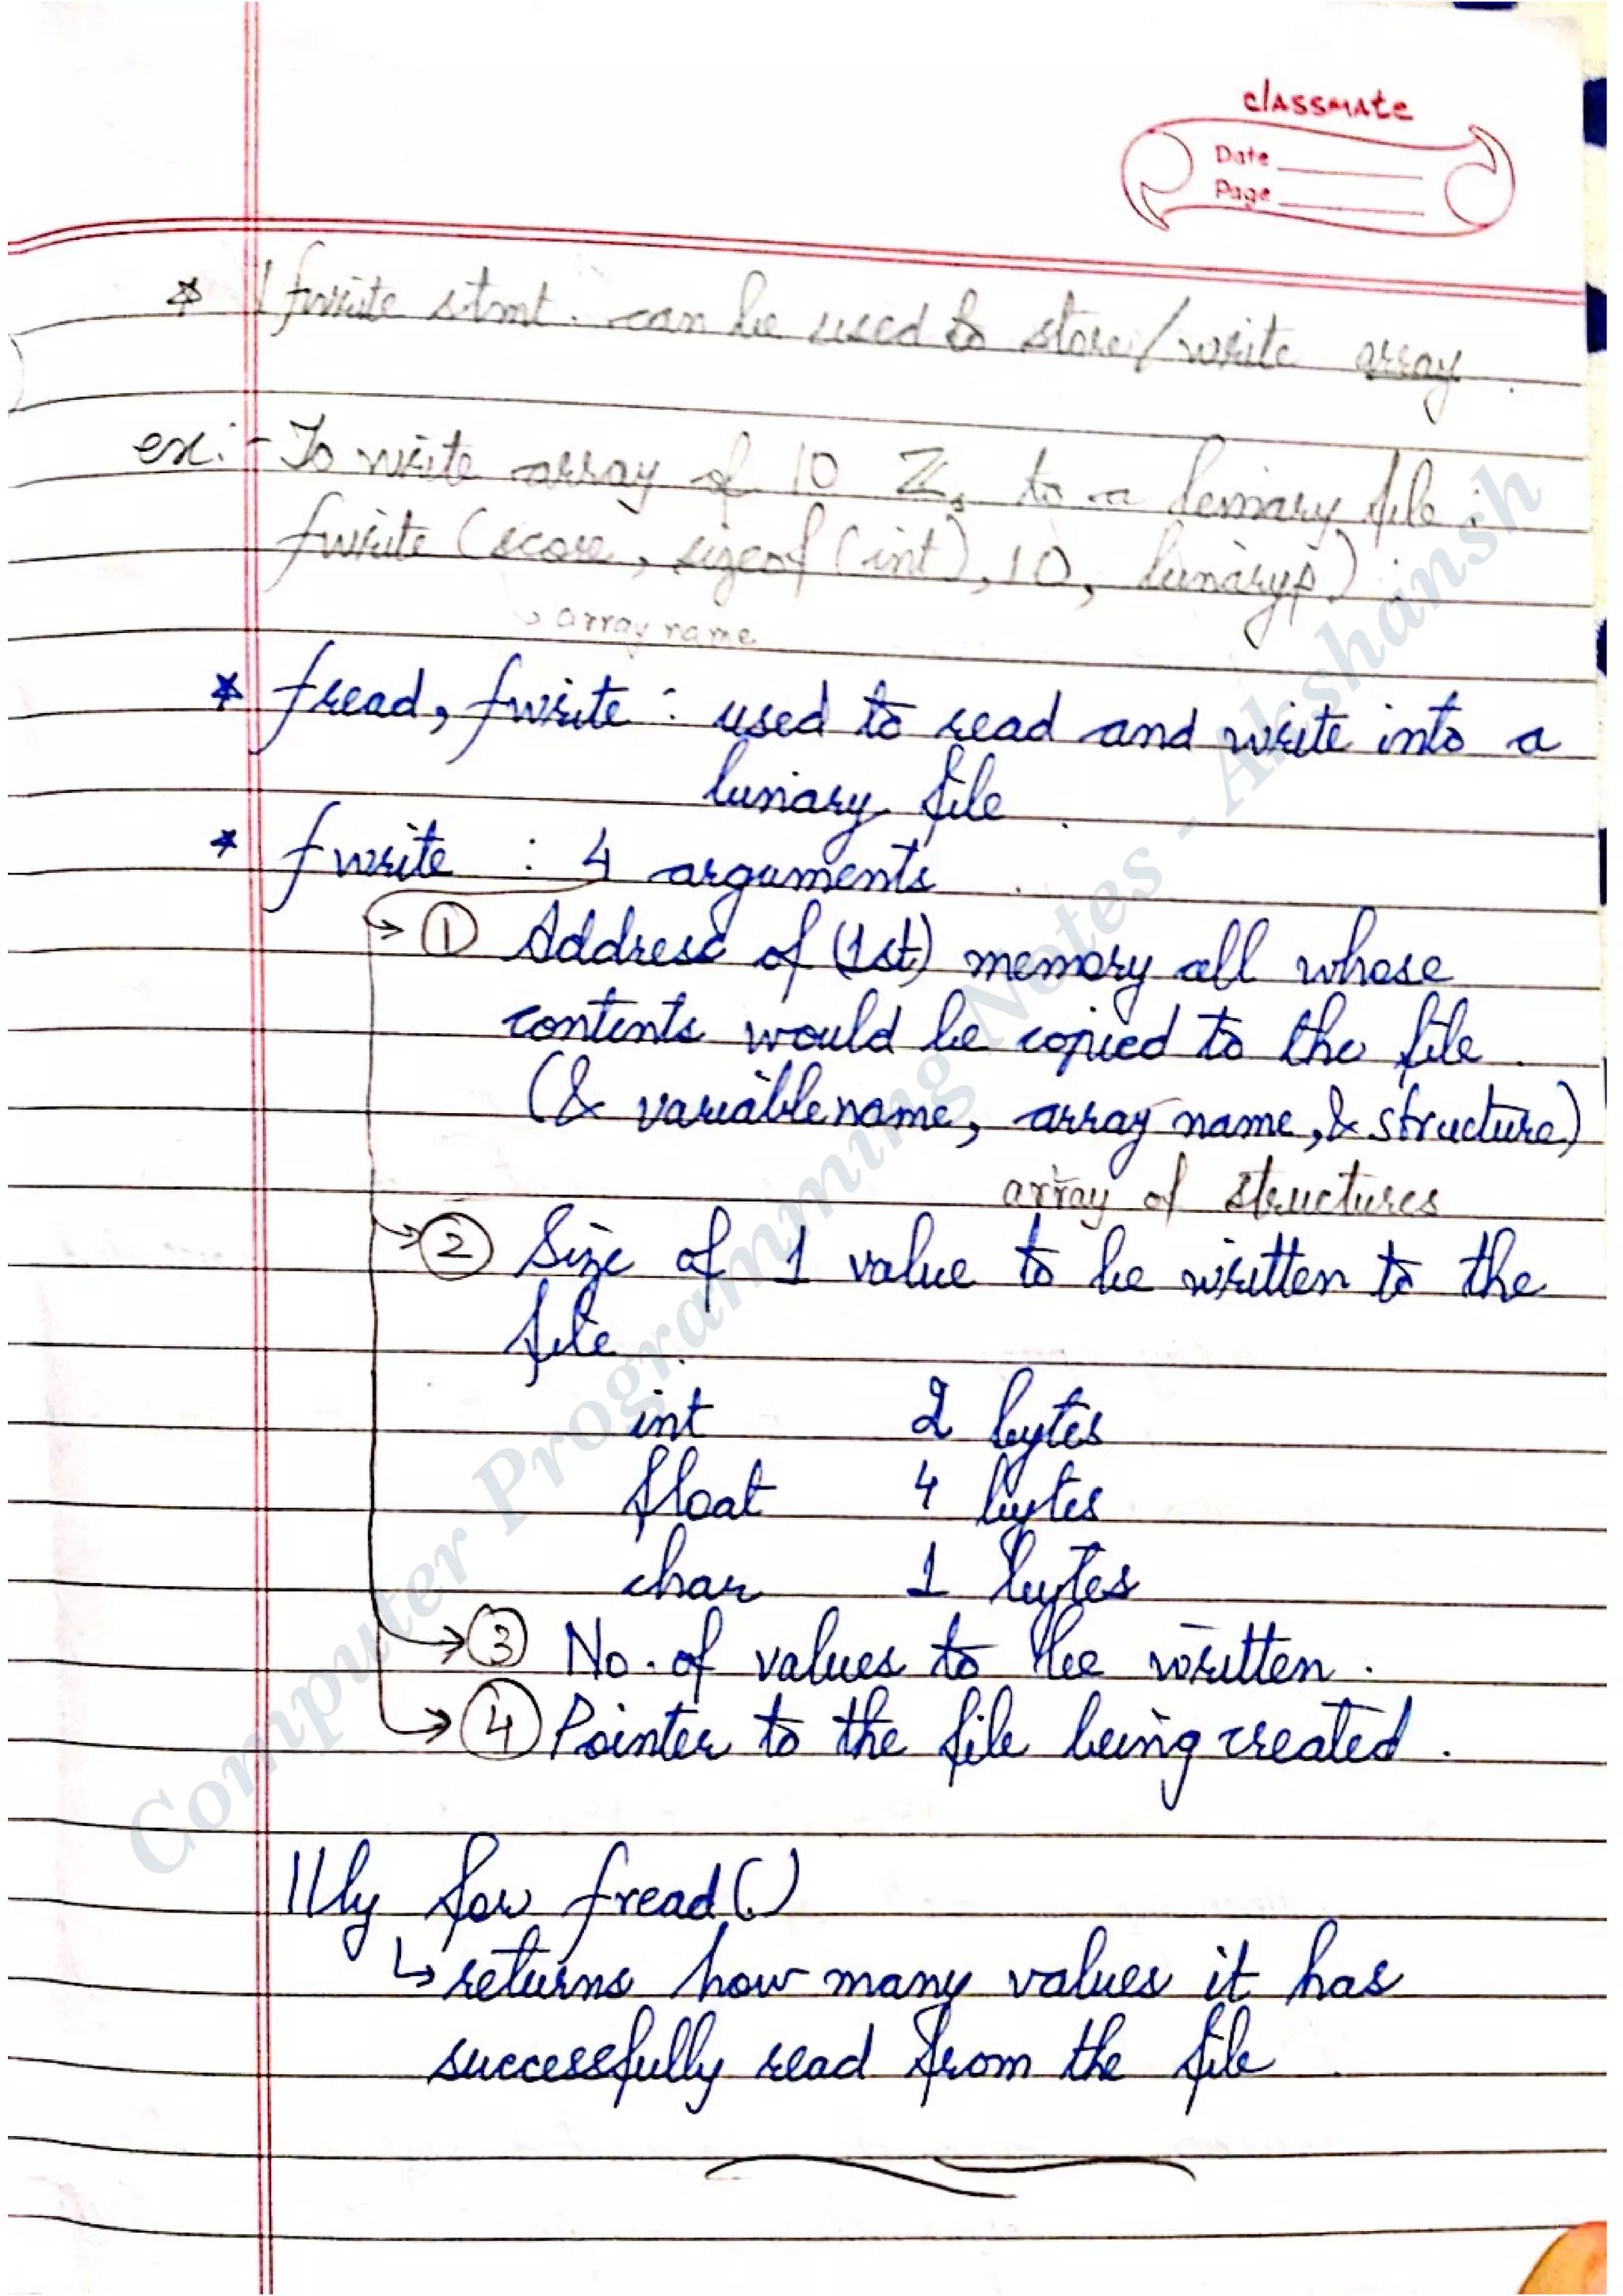 classmate
Date
Page
* 1 fwrite stmt. can be used to store/write array.
ex:- To write array of 10 Z, to a binary file:
fwrite (score, sizeof (int), 10, binaryp);
↳ array name
* fread, fwrite: used to read and write into a
binary file.
* fwrite : 4 arguments.
→ ① Address of (1st) memory all whose
contents would be copied to the file.
(& variable name, array name, & structure)
array of structures
→ ② Size of 1 value to be written to the
file.
int 2 bytes
float 4 bytes
char 1 bytes
→ ③ No. of values to be written.
→ ④ Pointer to the file being created.
Illy for fread()
↳ returns how many values it has
successfully read from the file.
Computer Programming Notes - Akshansh